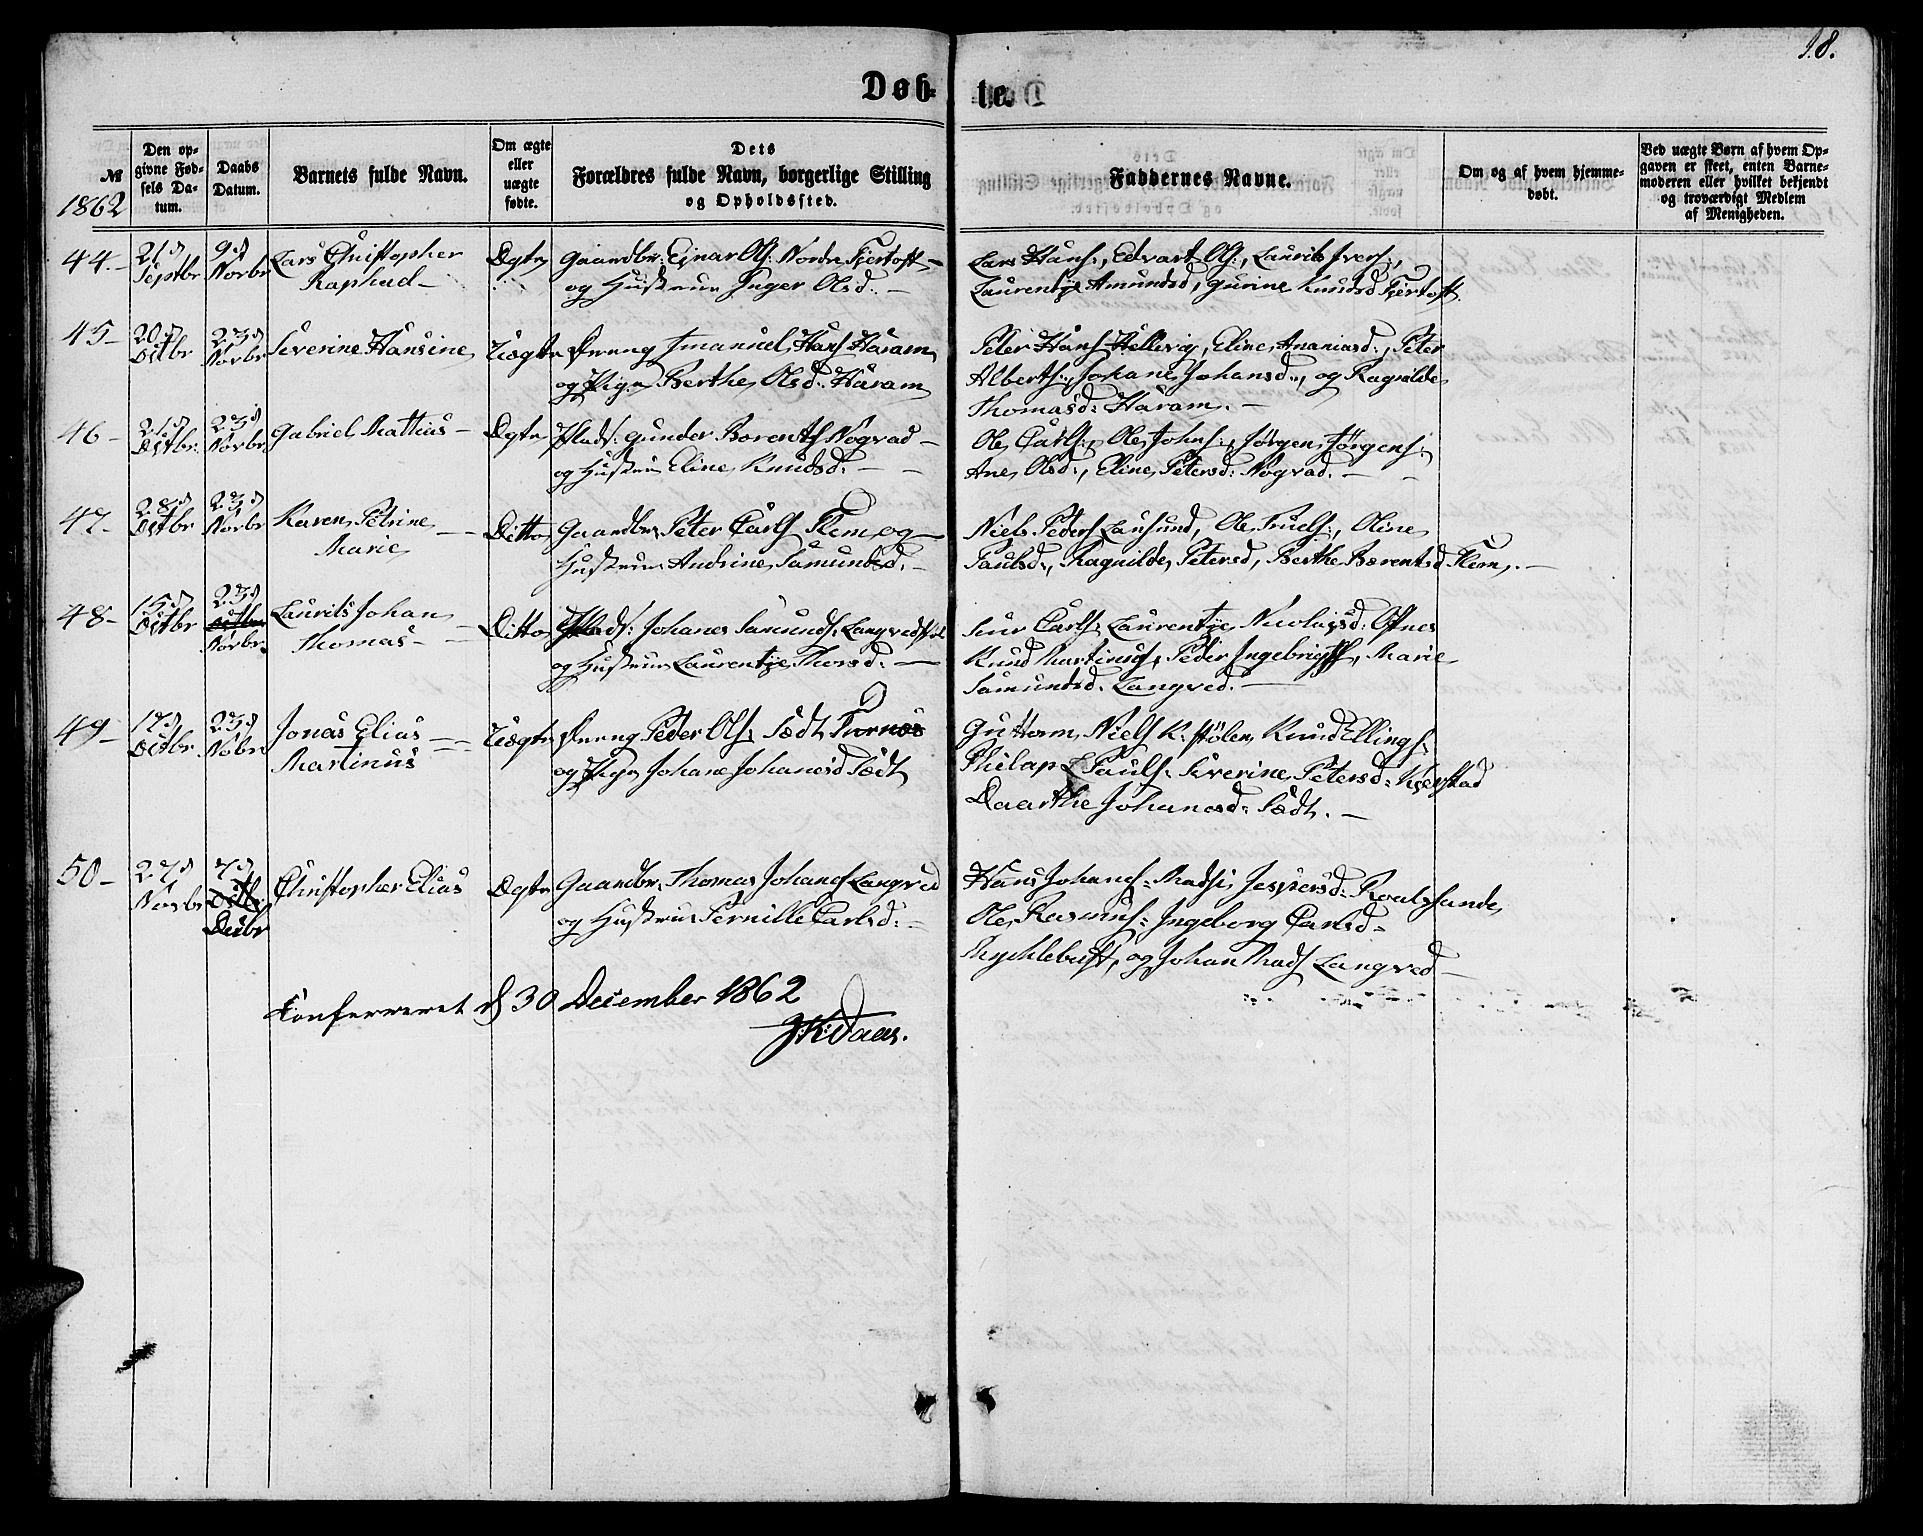 18.
Døb-
te.
№
1862
Den op-
givne Fød-
sels Da-
tum.
Daabs
Datum.
Barnets fulde Navn.
Om ægte
eller
uægte
fødte.
Dets
Forældres fulde Navn, borgerlige Stilling
og Opholdssted.
Faddernes Navne.
Om og af hvem hjemme-
døbt.
Ved uægte Børn af hvem Op-
gaven er skeet, enten Barne-
moderen eller hvilket bekjendt
og troværdigt Medlem
af Menigheden.
44.-
21d
Septbr
9d
Novbr
Lars Christopher
Raphael -
Ægte
Gaardbr: Ejnar Ols: Nordre Fjertoft -
og Hustrue Inger Olsd: -
Lars Hans:, Edvart Ols:, Laurits Ivers:,
Laurentze Amundsd, Gurine Knudsd Fjertoft
45-
20d
Octbr
23d
Novbr
Severine Hansine
Uægte
Dreng Imanuel Hans Haram
og Pige Berthe Olsd: Haram
Peter Hans Hellevig, Eline Ananiasd:, Peter
Alberts:, Johane Johansd:, og Ragnilde
Thomasd: Haram. -
46-
21d
Octbr
23d
Novbr
Gabriel Mathias -
Ægte
Plads: Gunder Barents Nogvad -
og Hustrue Eline Knudsd: -
Ole Carls:, Ole Johns:, Jørgen Jørgens:
Ane Olsd:, Eline Petersd: Nogvad. -
47-
28d
Octbr
23d
Novbr
Karen Petrine
Marie
Ditto
Gaardbr Peter Carls Flem og
Hustrue Andrine Samundsd. -
Niels Peders Lausund, Ole Truels:, Oline
Paulsd:, Ragnilde Petersd, Berthe Barentsd Flem. -
48-
15d
Octbr
23d
Octbr
Novbr.
Laurits Johan
Thomas -
Ditto
Plads: Johanes Samunds: Langvedstøl
og Hustrue Laurentze Thorsd: -
Siur Carls: Laurentze Nicolaysd: Østnes
Knud Martinus, Peder Ingebrigts, Marie
Samundsd: Langved. -
49-
17d
Octbr
23d
Nobr
Jonas Elias -
Martinus
Uægte
Dreng Peder Ols: Sædt Turnøs
og Pige Johane Johanesd Sædt
Guttorm Niels K:stølen Knud Ellings:
Philap E Pauls: Severine Petersd: Kjerstad
Daarthe Johanesd: Sædt. -
50-
27d
Novbr
7d
Octbr
Decbr
Christopher Elias
Ægte
Gaardbr. Thomas Johans Langved
og Hustrue Pernille Carlsd: -
Hans Johans: Madsi Jespersd: Roalssunde
Ole Rasmus: Ingeborg Carlsd:
Mychlebust, og Johan Mads Langved -
Konfereret d 30 December 1862
J:K:Daae.